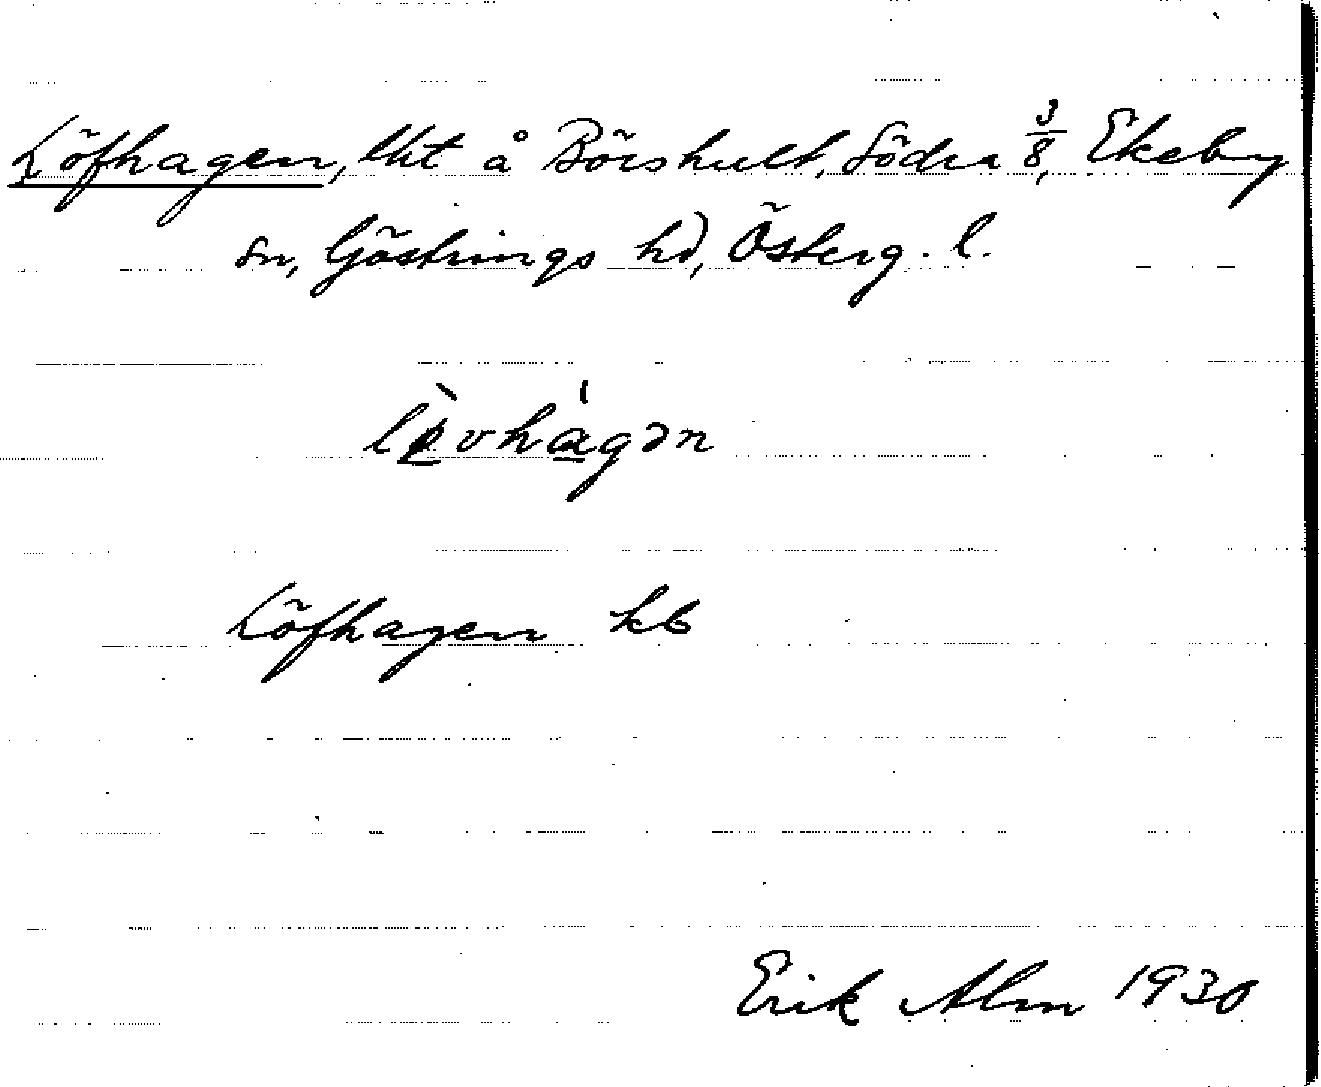 Löfhagen, lht å Börshult, Södra 3/8, Ekeby
sn, Göstrings hd, Österg. l.
Löfhagen kb
Erik Alm 1930